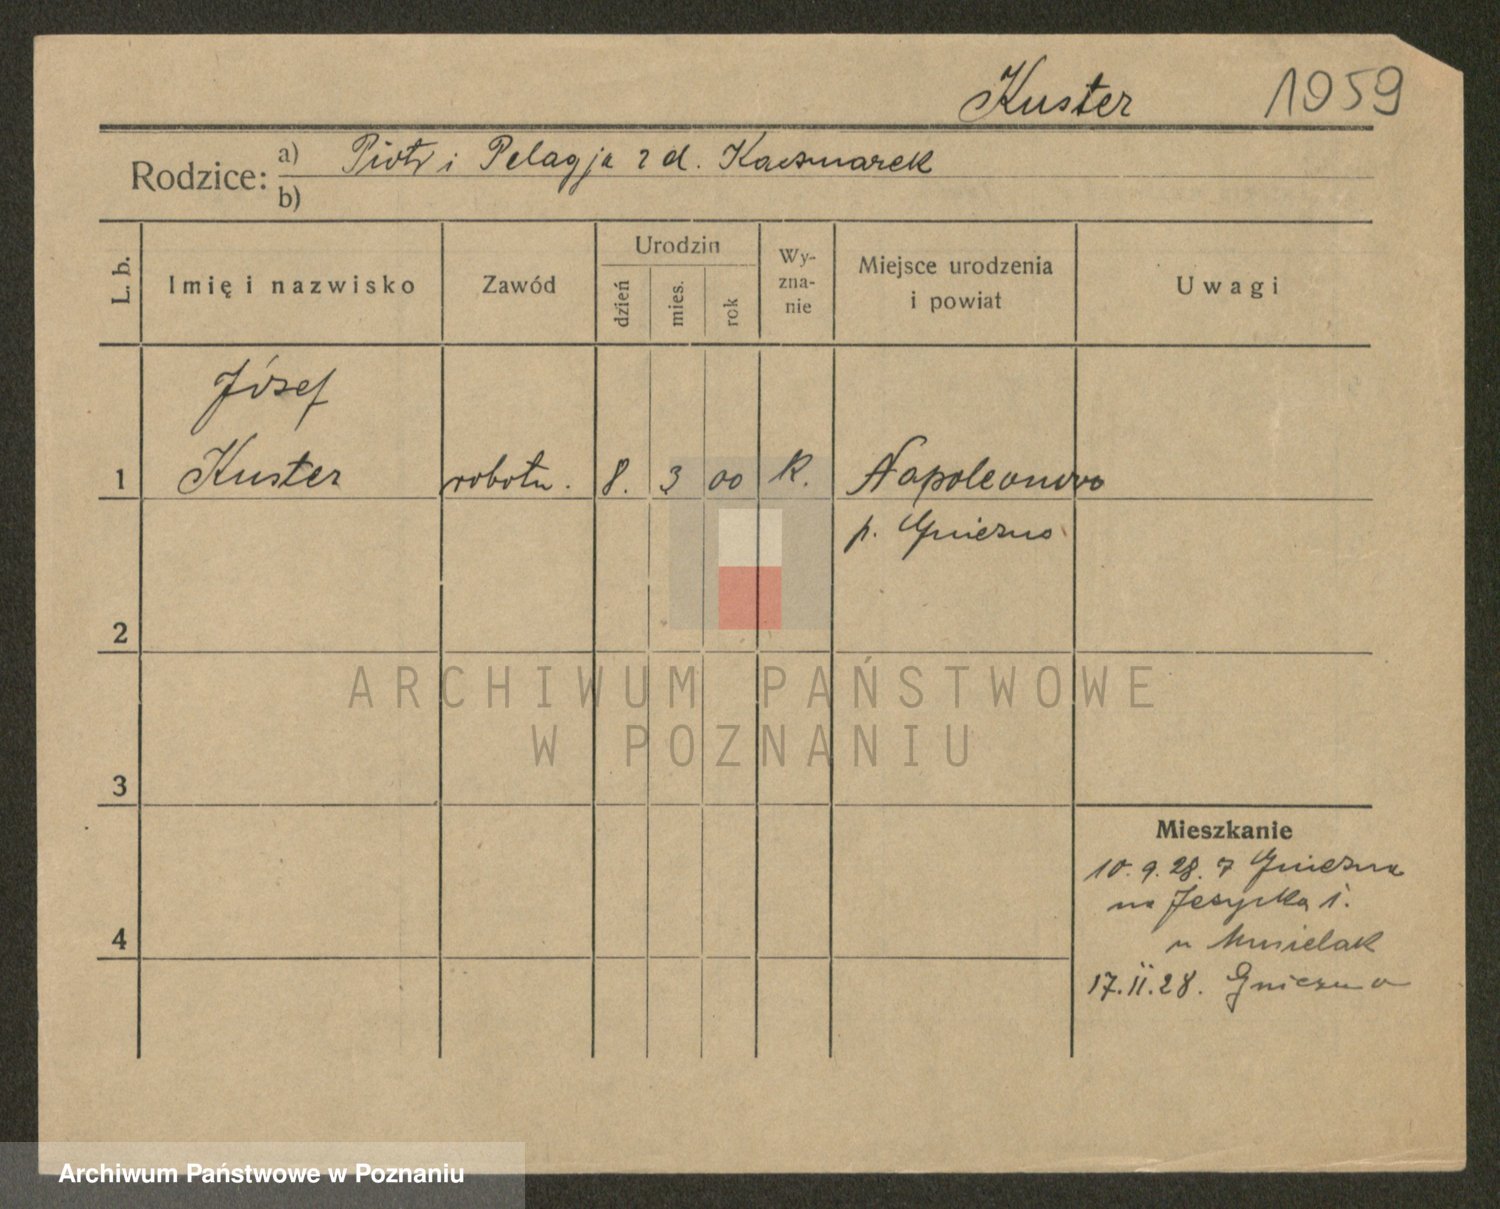 Kuster 1959
Rodzice: a) Piotr i Pelagja z d. Kaczmarek
b)
L. b. Imię i nazwisko Zawód Urodzin dzień mies. rok Wy-zna-nie Miejsce urodzenia i powiat Uwagi
Józef
1 Kuster robotn. 8. 3 00 k. Napoleonowo
p. Gniezno
2
ARCHIWUM PAŃSTWOWE
W POZNANIU
3
Mieszkanie
10.9.28. z Gniezna
na Jeżycka 1.
4
u Musielak
17.11.28. Gniezno
Archiwum Państwowe w Poznaniu